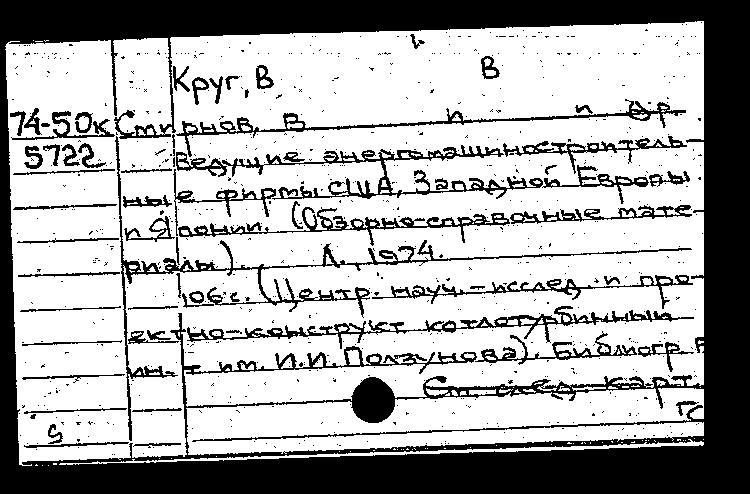 Круг, В В
74-50к Смирнов, В и др.
5722 Ведущие энергомашинострoитель-
ные фирмы США, Западной Европы
и Японии. (Обзорно-справочные мате-
риалы). Л., 1974.
106 с. (Центр. науч.-исслед. и про-
ектно-конструкт котлотурбинный
ин-т им. И.И. Ползунова). Библиогр
См. след. карт.